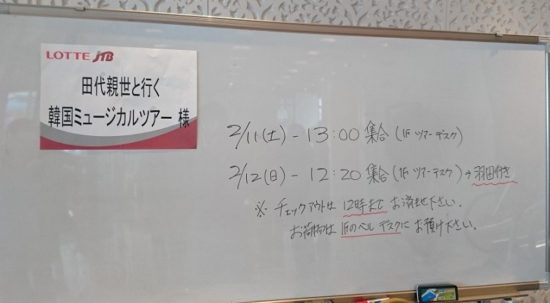 LOTTE JTB
田代親世と行く
韓国ミュージカルツアー 様
2/11(土) - 13:00 集合 (1F ツアーデスク)
2/12(日) - 12:20 集合 (1F ツアーデスク) → 羽田行き
※ チェックアウトは 12時まで お済ませ下さい。
お荷物は 1Fのベルデスクに お預け下さい。